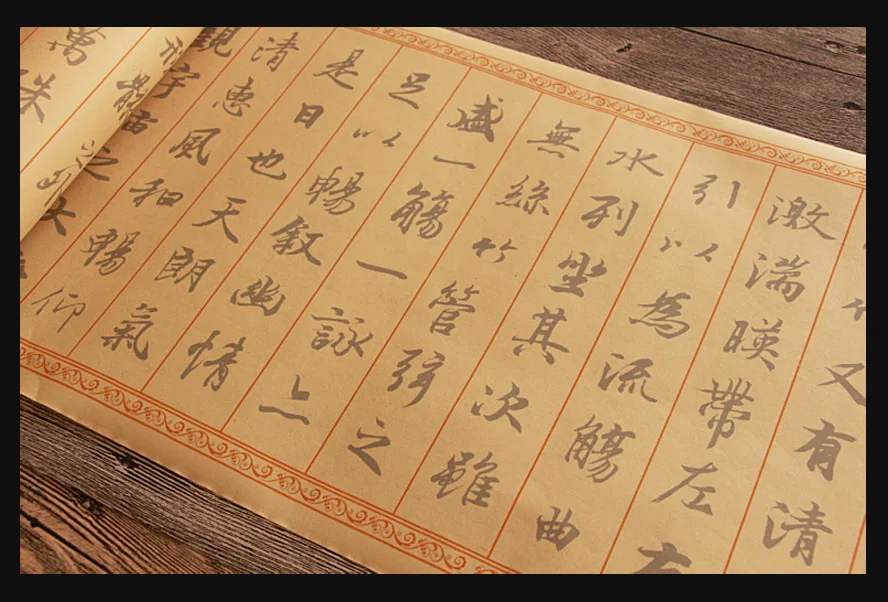 又有清
激湍暎帶左右
引以為流觴曲
水列坐其次雖
無絲竹管弦之
盛一觴一詠亦
足以暢叙幽情
是日也天朗氣
清惠風和暢仰
觀宇宙之大
萬殊